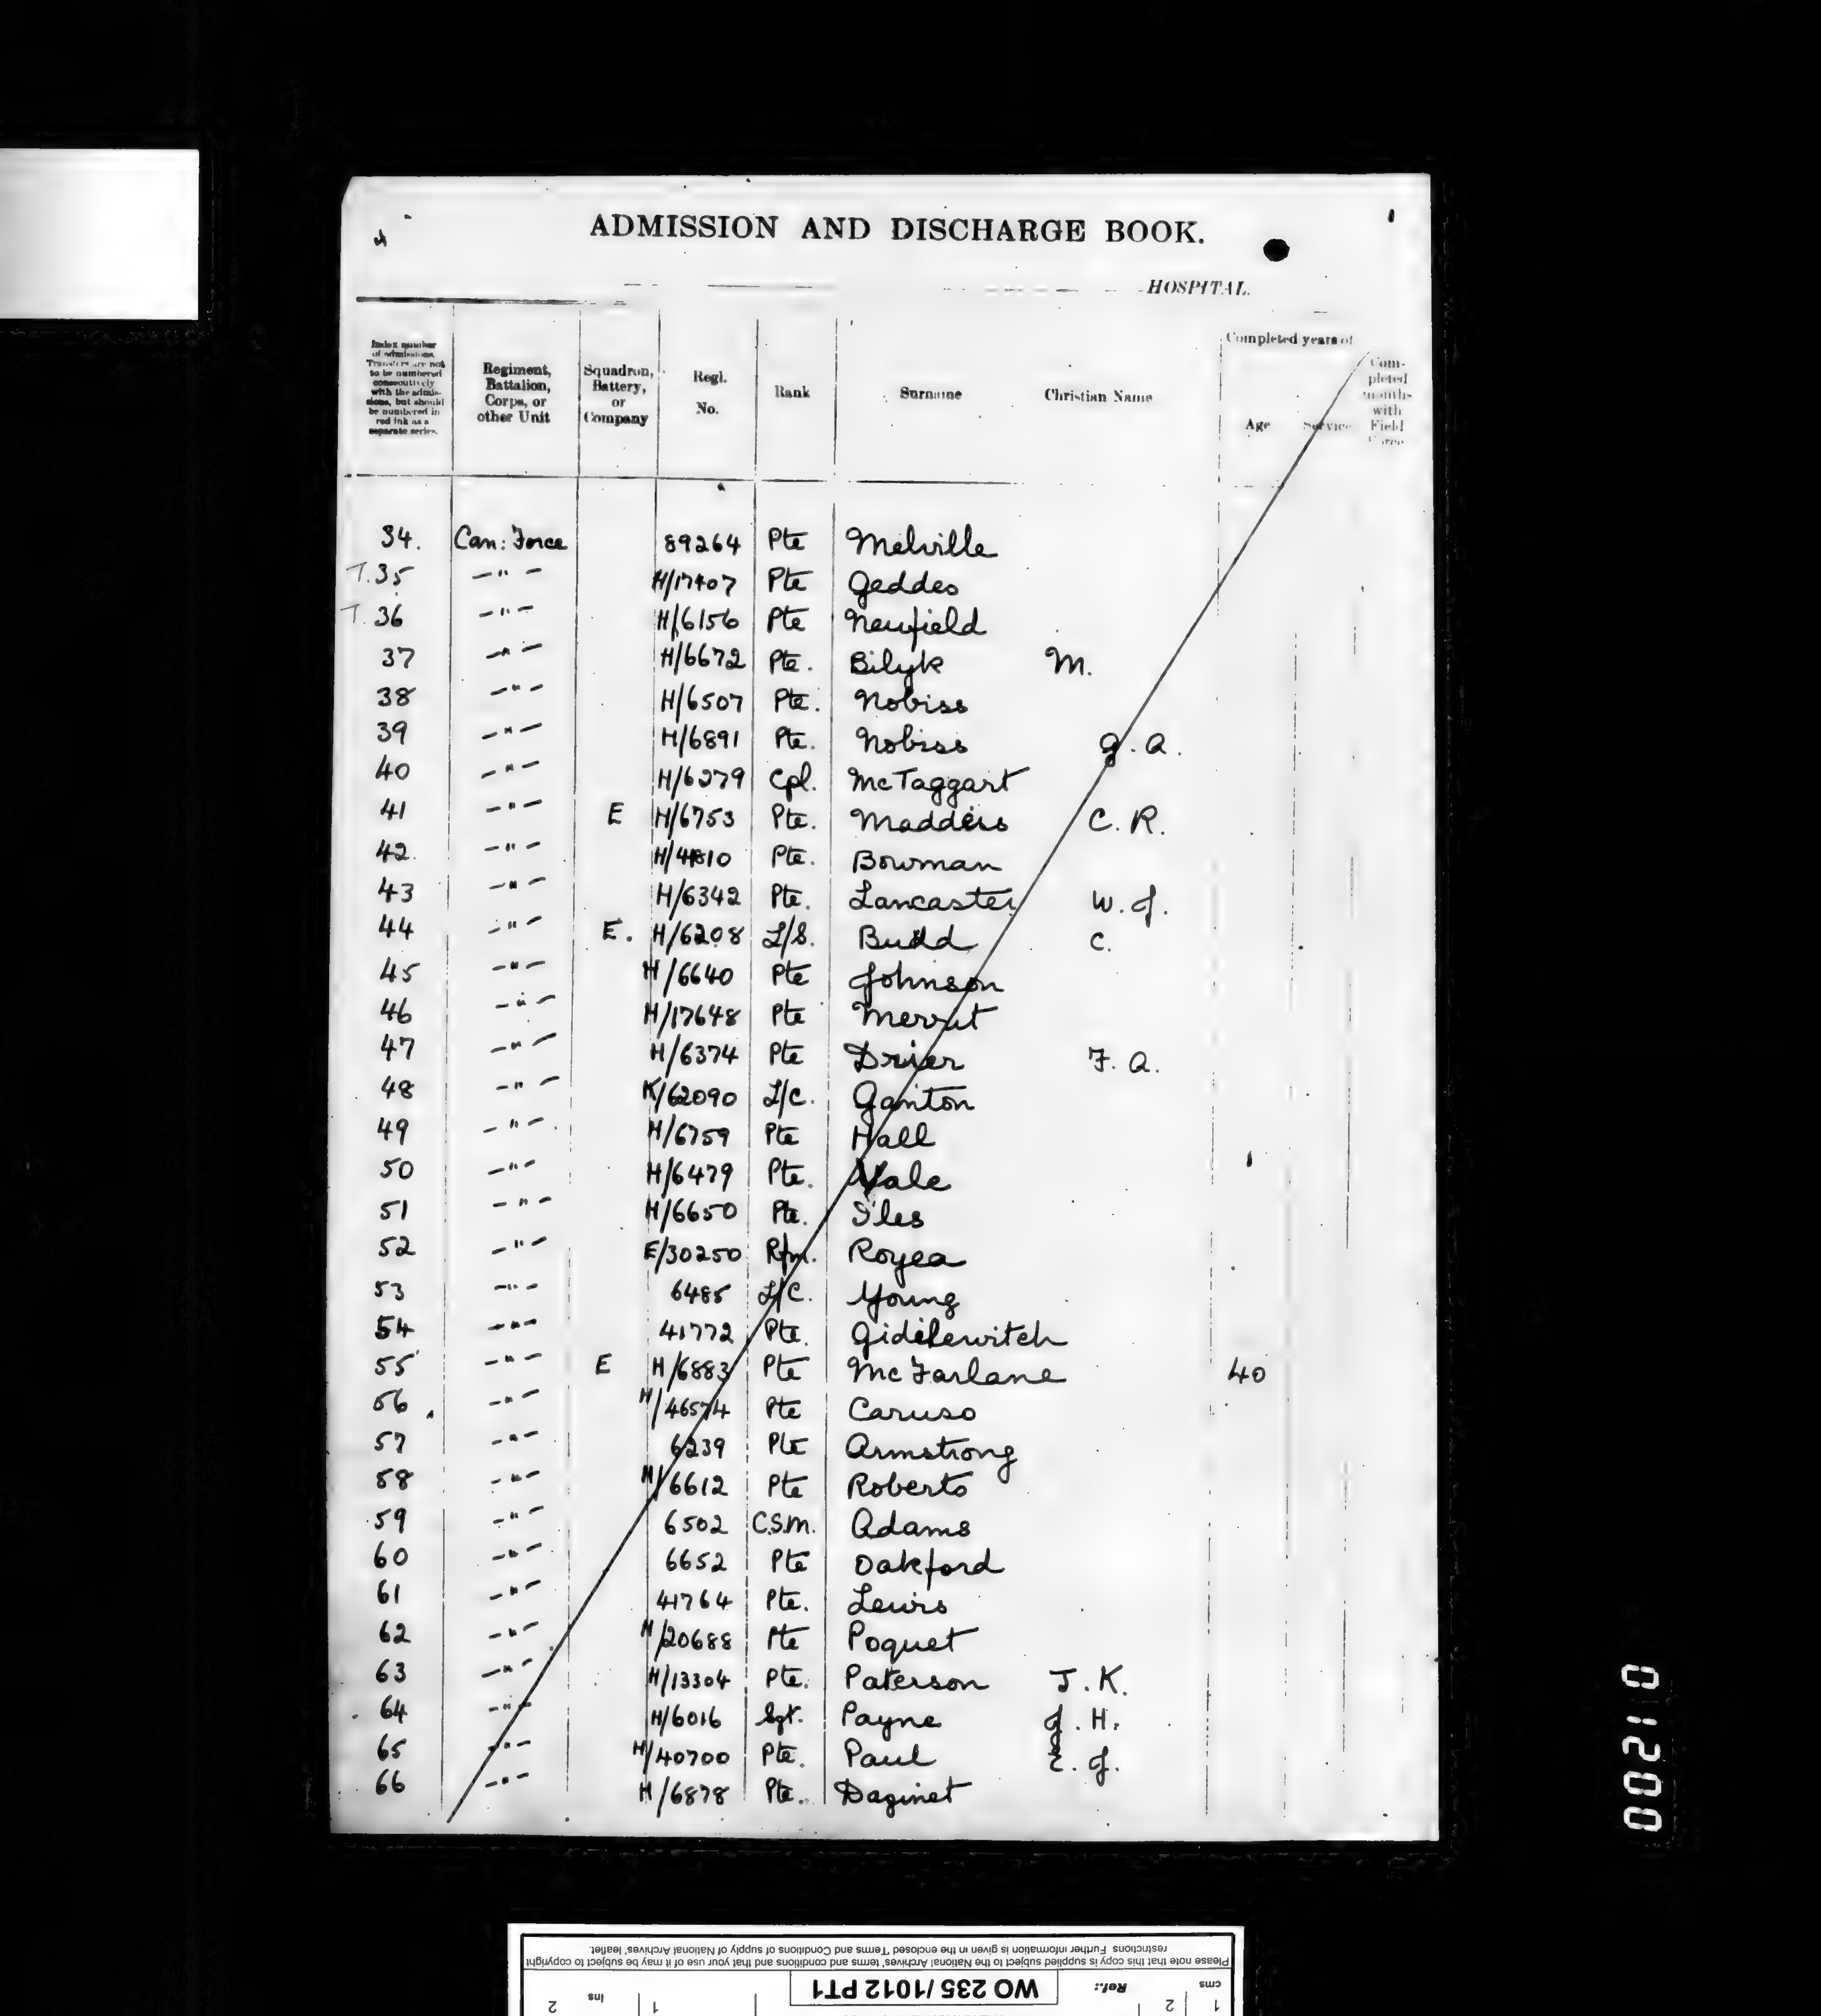 ADMISSION AND DISCHARGE BOOK.
HOSPITAL.
Index number of admissions. Transfers are not to be numbered consecutively with the admissions, but should be numbered in red ink as a separate series.
Regiment, Battalion, Corps, or other Unit
Squadron, Battery, or Company
Regl. No.
Rank
Surname
Christian Name
Completed years of
Age
Service
Completed months with Field Force
34. Can: Force 89264 Pte Melville
T.35 -"- H/17407 Pte Geddes
T.36 -"- H/6156 Pte Neufield
37 -"- H/6672 Pte. Bilyk M.
38 -"- H/6507 Pte. Nobiss
39 -"- H/6891 Pte. Nobiss G.A.
40 -"- H/6279 Cpl. McTaggart
41 -"- E H/6753 Pte. Maddess C.R.
42. -"- H/4810 Pte. Bowman
43 -"- H/6342 Pte. Lancaster W.J.
44 -"- E. H/6208 L/S. Budd C.
45 -"- H/6640 Pte Johnson
46 -"- H/17648 Pte Merrit
47 -"- H/6374 Pte Drier F.A.
48 -"- K/62090 L/C. Ganton
49 -"- H/6759 Pte Hall
50 -"- H/6479 Pte. Vale
51 -"- H/6650 Pte. Iles
52 -"- E/30250 Rfm. Royea
53 -"- 6485 L/C. Young
54 -"- 41772 Pte. Gidilewitch
55 -"- E H/6883 Pte McFarlane 40
56 -"- H/46574 Pte Caruso
57 -"- 6239 Pte Armstrong
58 -"- H/6612 Pte Roberts
59 -"- 6502 C.S.M. Adams
60 -"- 6652 Pte Oakford
61 -"- 41764 Pte. Lewis
62 -"- H/20688 Pte Poquet
63 -"- H/13304 Pte. Paterson J.K.
64 -"- H/6016 Sgt. Payne J.H.
65 -"- H/40700 Pte. Paul E.J.
66 -"- H/6878 Pte. Daginet
001210
Please note that this copy is supplied subject to the National Archives' terms and conditions and that your use of it may be subject to copyright
restrictions. Further information is given in the enclosed 'Terms and Conditions of supply of National Archives' leaflet.
cms 1 2
Ref.: WO 235/1012 PT1
ins 1 2